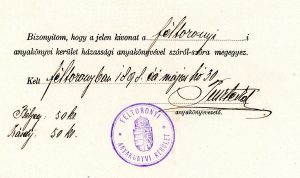 Bizonyitom, hogy a jelen kivonat a féltoronyi
anyakönyvi kerület házassági anyakönyvével szóról-szóra megegyez.
Kelt féltoronyban 1898. évi május hó 30.
anyakönyvvezető.
Bélyeg: 50 kr.
50 kr.
FÉLTORONYI
ANYAKÖNYVI KERÜLET